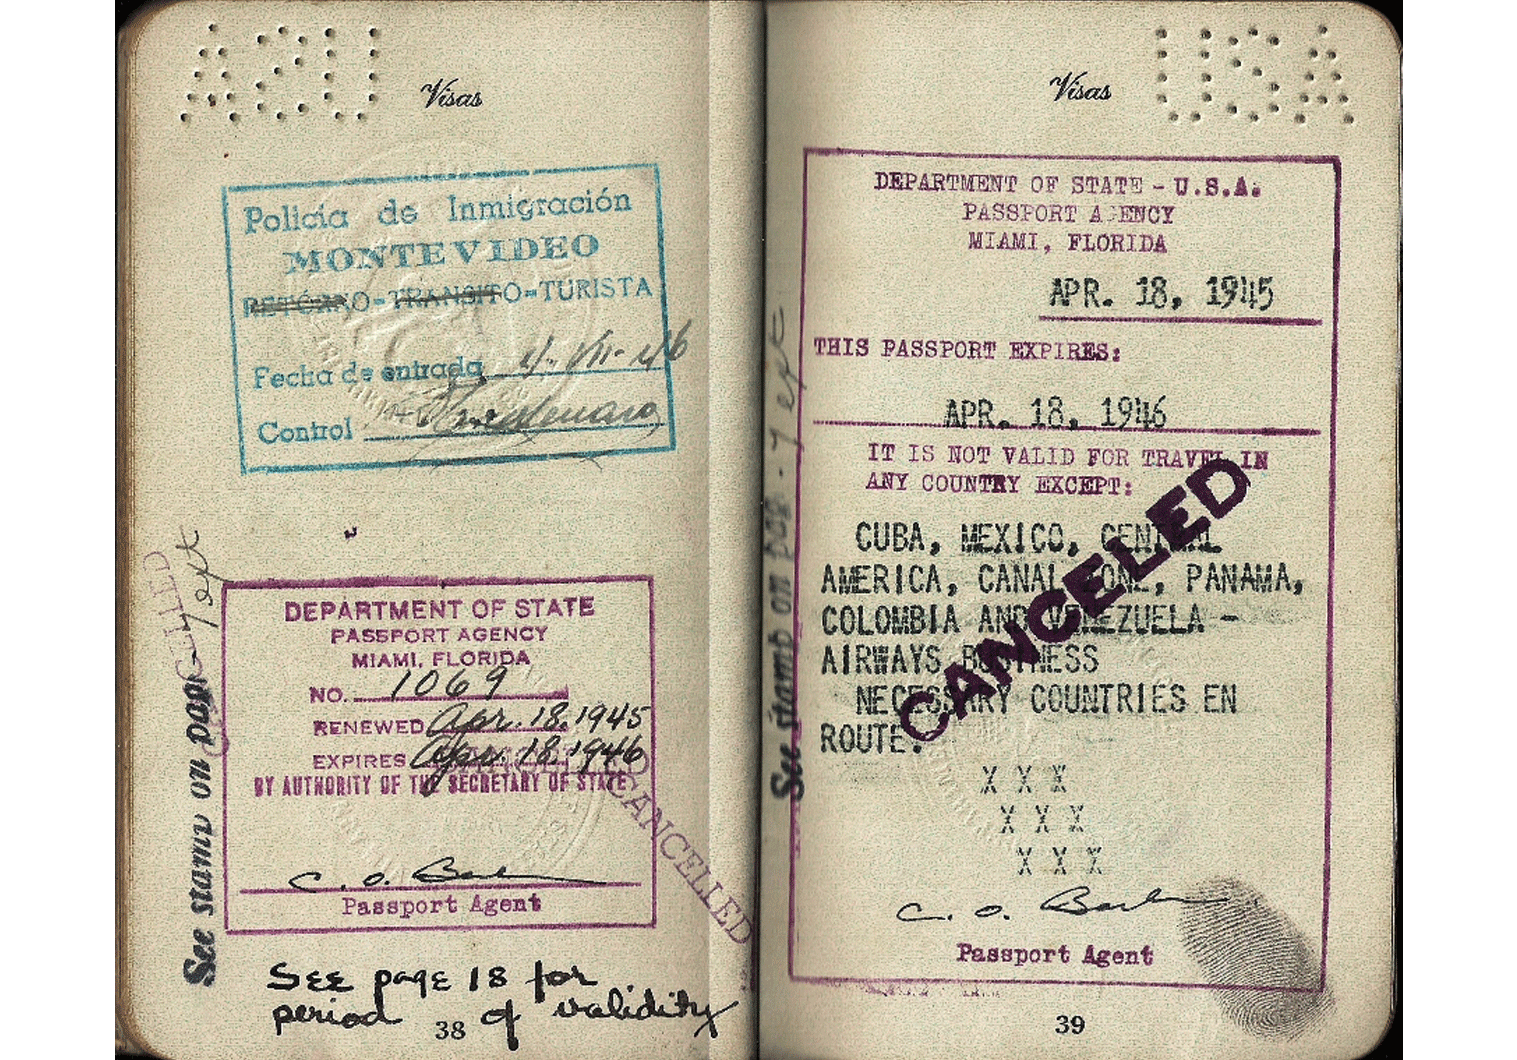 USA
Visas
Policía de Inmigración
MONTEVIDEO
RETORNO-TRANSITO-TURISTA
Fecha de entrada 4-VII-46
Control
DEPARTMENT OF STATE
PASSPORT AGENCY
MIAMI, FLORIDA
NO. 1069
RENEWED Apr. 18, 1945
EXPIRES Apr. 18, 1946
BY AUTHORITY OF THE SECRETARY OF STATE
C. O.
Passport Agent
CANCELLED
See stamp on page 7 ext
See page 18 for
period of validity
38
USA
Visas
DEPARTMENT OF STATE - U.S.A.
PASSPORT AGENCY
MIAMI, FLORIDA
APR. 18, 1945
THIS PASSPORT EXPIRES:
APR. 18, 1946
IT IS NOT VALID FOR TRAVEL IN
ANY COUNTRY EXCEPT:
CUBA, MEXICO, CENTRAL
AMERICA, CANAL ZONE, PANAMA,
COLOMBIA AND VENEZUELA -
AIRWAYS BUSINESS
NECESSARY COUNTRIES EN
ROUTE.
X X X
X X X
X X X
CANCELED
C. O.
Passport Agent
See stamp on pag. 7 ext
39